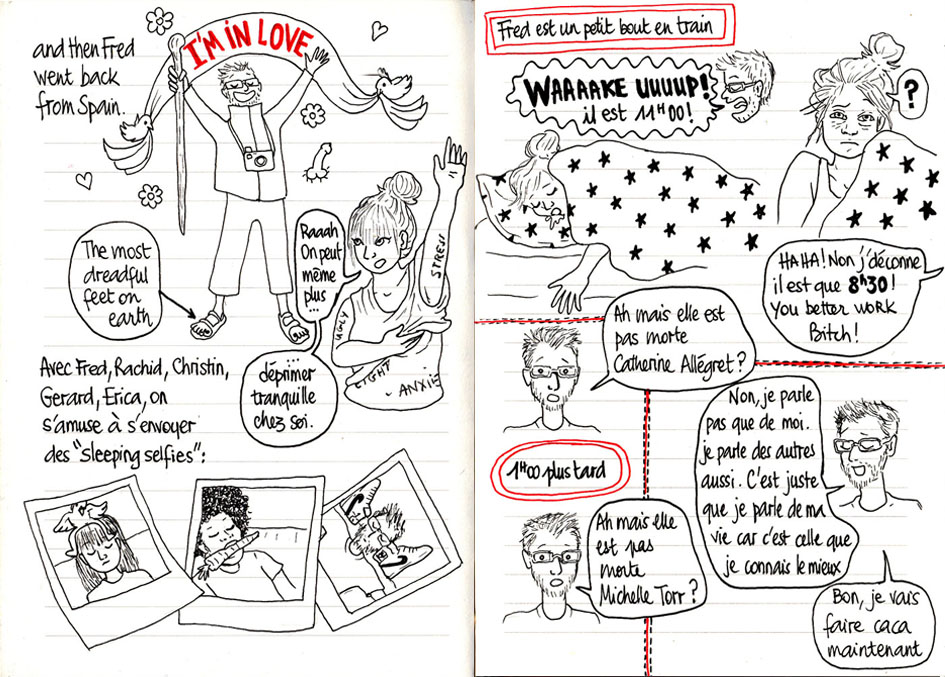 and then Fred
went back
from Spain.
I'M IN LOVE
The most
dreadful
feet on
earth
Raaah
On peut
même
plus
...
déprimer
tranquille
chez soi.
STRESS
UGLY
LIGHT
ANXIE
Avec Fred, Rachid, Christin,
Gerard, Erica, on
s'amuse à s'envoyer
des "sleeping selfies":
Fred est un petit bout en train
WAAAAKE UUUUP!
il est 11H00!
?
HAHA! Non j'déconne
il est que 8h30!
You better work
Bitch!
Ah mais elle est
pas morte
Catherine Allégret?
1H00 plus tard
Ah mais elle
est pas
morte
Michelle Torr?
Non, je parle
pas que de moi.
je parle des autres
aussi. C'est juste
que je parle de ma
vie car c'est celle que
je connais le mieux
Bon, je vais
faire caca
maintenant